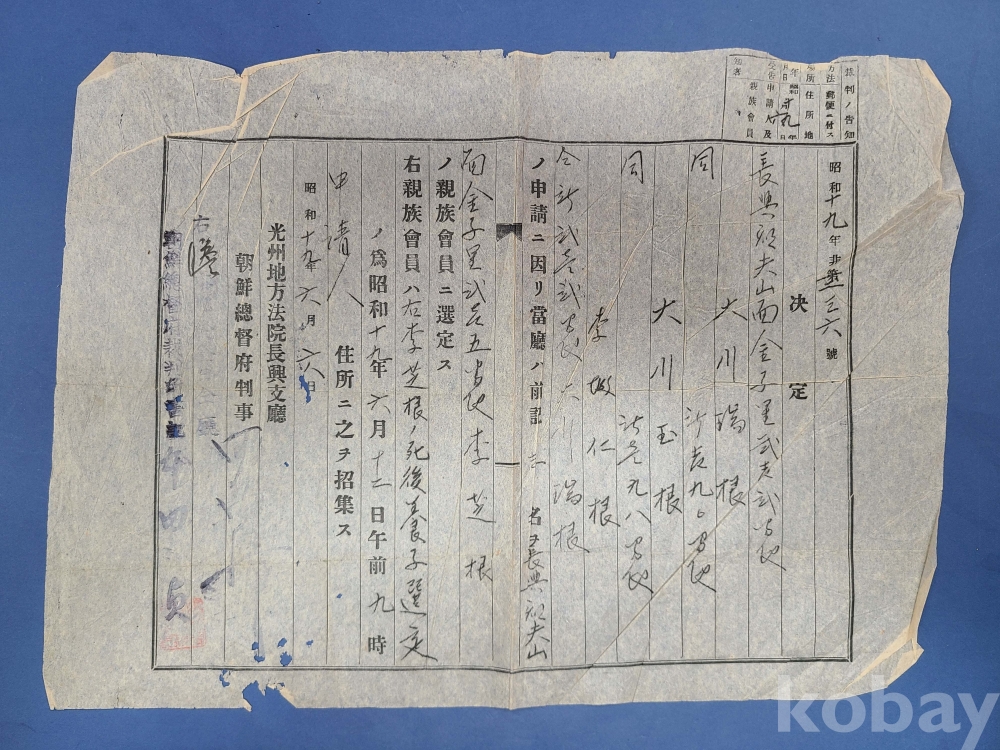 裁判ノ告知
方法 郵便ニ付ス
場所 住所地
年月日 昭和十九年
受告 申請人及
知者 親族會員
昭和十九年非第三六號
決定
長興郡夫山面金子里貳壱貳番地
大川瑞根
同
九〇番地
大川玉根
同
九八番地
李 仁根
今般
大川瑞根
ノ申請ニ因リ當廳ハ前記 名ヲ長興郡夫山
面金子里貳壱五番地李芝根
ノ親族會員ニ選定ス
右親族會員ハ右李芝根ノ死後養子選定
ノ爲昭和十九年六月十二日午前九時
申請人住所ニ之ヲ招集ス
昭和十九年六月六日
光州地方法院長興支廳
朝鮮總督府判事
右謄
朝鮮總督府裁判所書記 田 貞
kobay